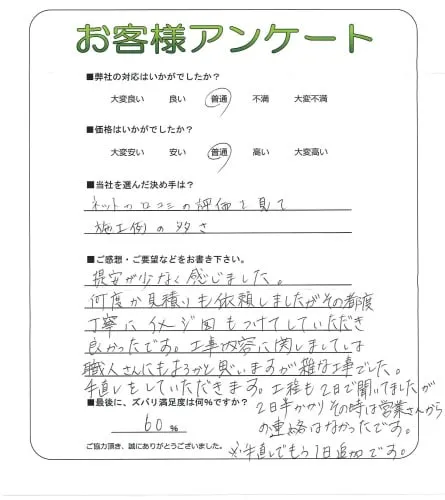 お客様アンケート
■弊社の対応はいかがでしたか？
大変良い 良い 普通 不満 大変不満
■価格はいかがでしたか？
大変安い 安い 普通 高い 大変高い
■当社を選んだ決め手は？
ネットの口コミの評価を見て
施工例の多さ
■ご感想・ご要望などをお書き下さい。
提案が少なく感じました。
何度か見積りも依頼しましたがその都度
丁寧にイメージ図もつけてしていただき
良かったです。工事内容に関しましては
職人さんにもよるかと思いますが雑な工事でした。
手直しをしていただきます。工程も2日で聞いてましたが
2日半かかりその時は営業さんから
の連絡はなかったです。
※手直しでもう1日追加です。
■最後に、ズバリ満足度は何％ですか？
60 %
ご協力頂き、誠にありがとうございました。